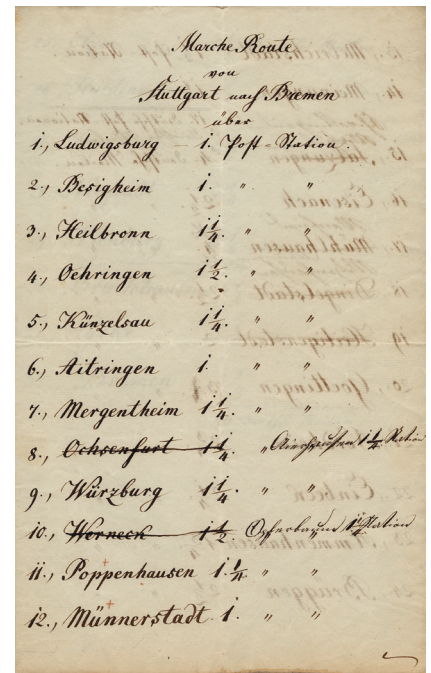 Marche Route
von
Stuttgart nach Bremen
über
1., Ludwigsburg — 1. Post-Station.
2., Besigheim 1. " "
3., Heilbronn 1 1/4. " "
4., Oehringen 1 1/2. " "
5., Künzelsau 1 1/4. " "
6., Aitringen 1. " "
7., Mergentheim 1 1/4. " "
8., Ochsenfurt 1 1/4 " 1 1/4 Station
9., Würzburg 1 1/4. " "
10., Werneck 1 1/2. Opferbaum Station
11., Poppenhausen 1 1/4 " "
12., Münnerstadt 1. " "